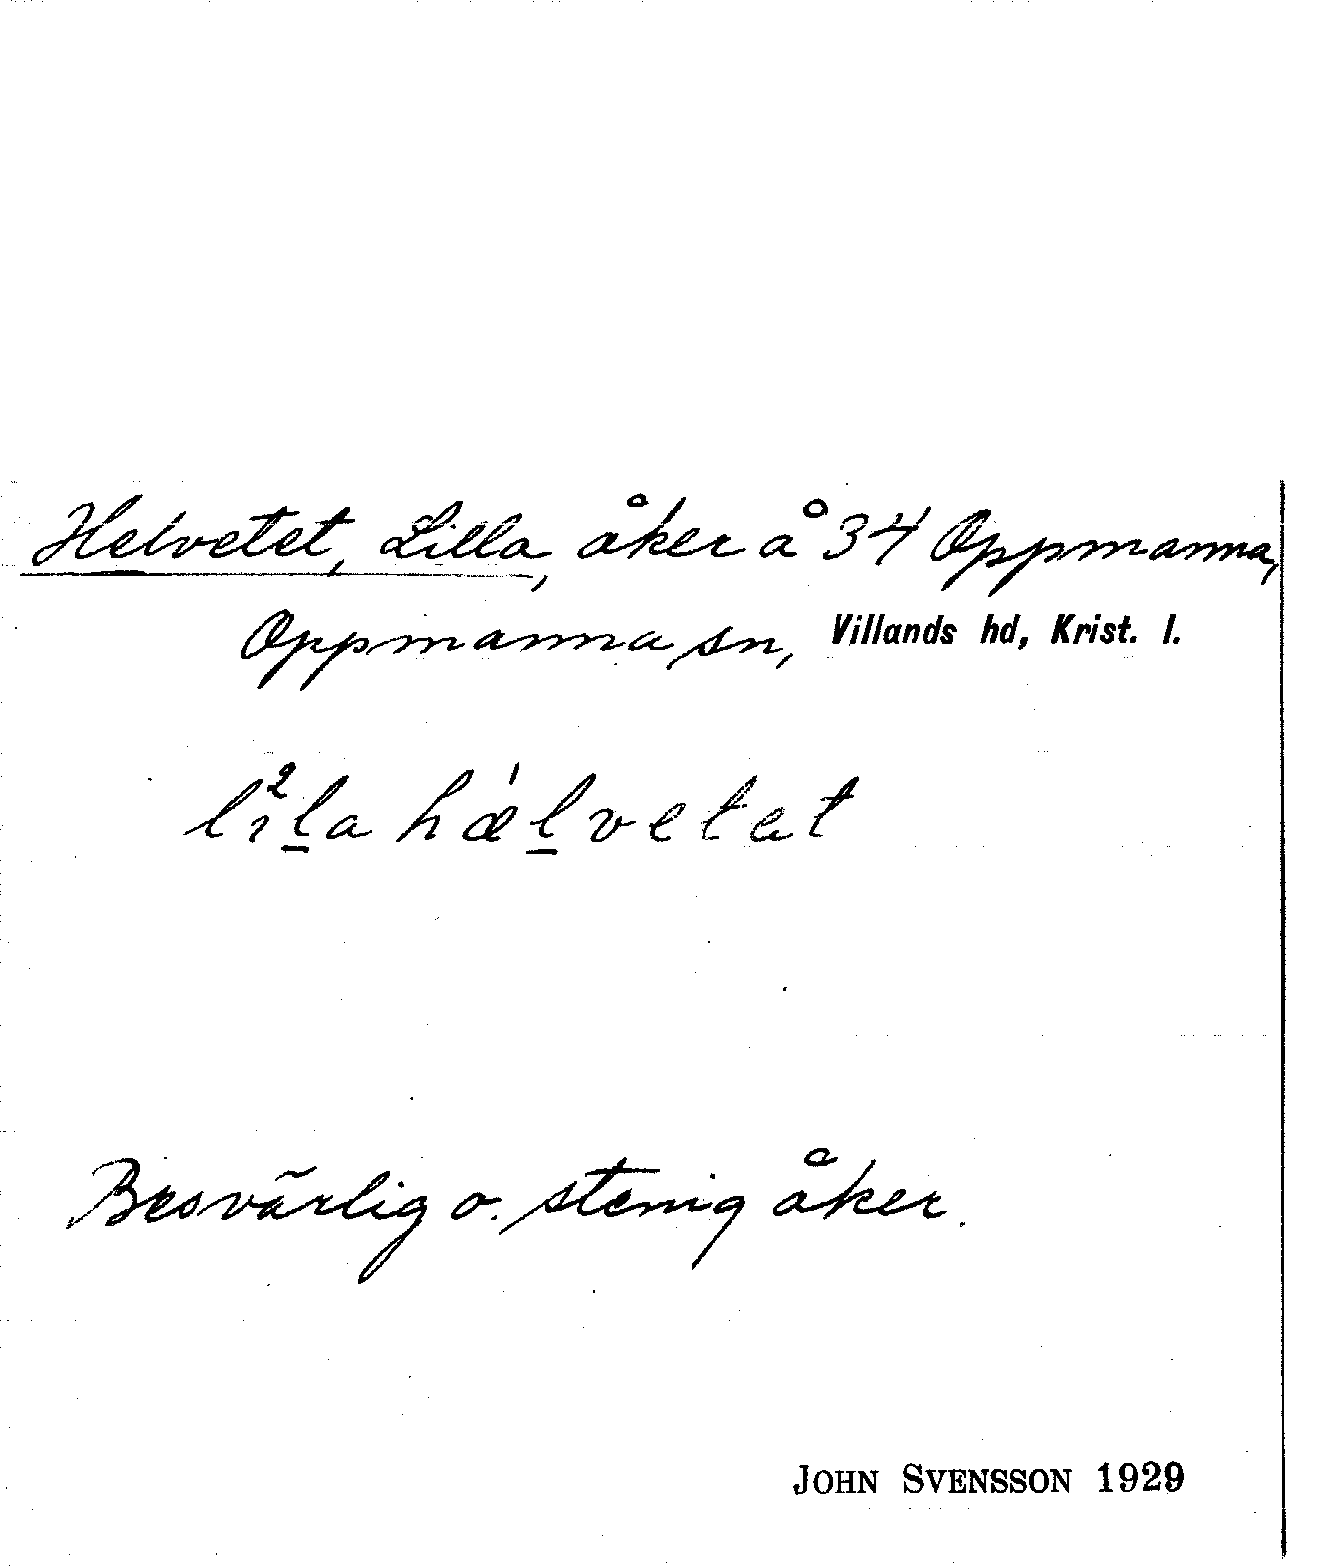 Helvetet, Lilla, åker å 34 Oppmanna,
Oppmanna sn, Villands hd, Krist. l.
lı²l̲a hæ'l̲vetat
Besvärlig o. stenig åker.
JOHN SVENSSON 1929